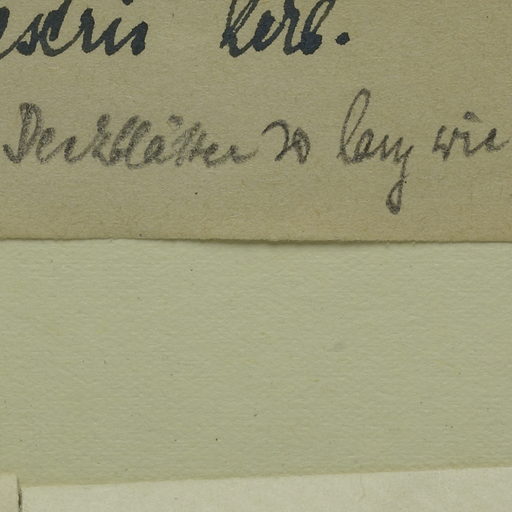 estris herb.
Deckblätter so lang wie